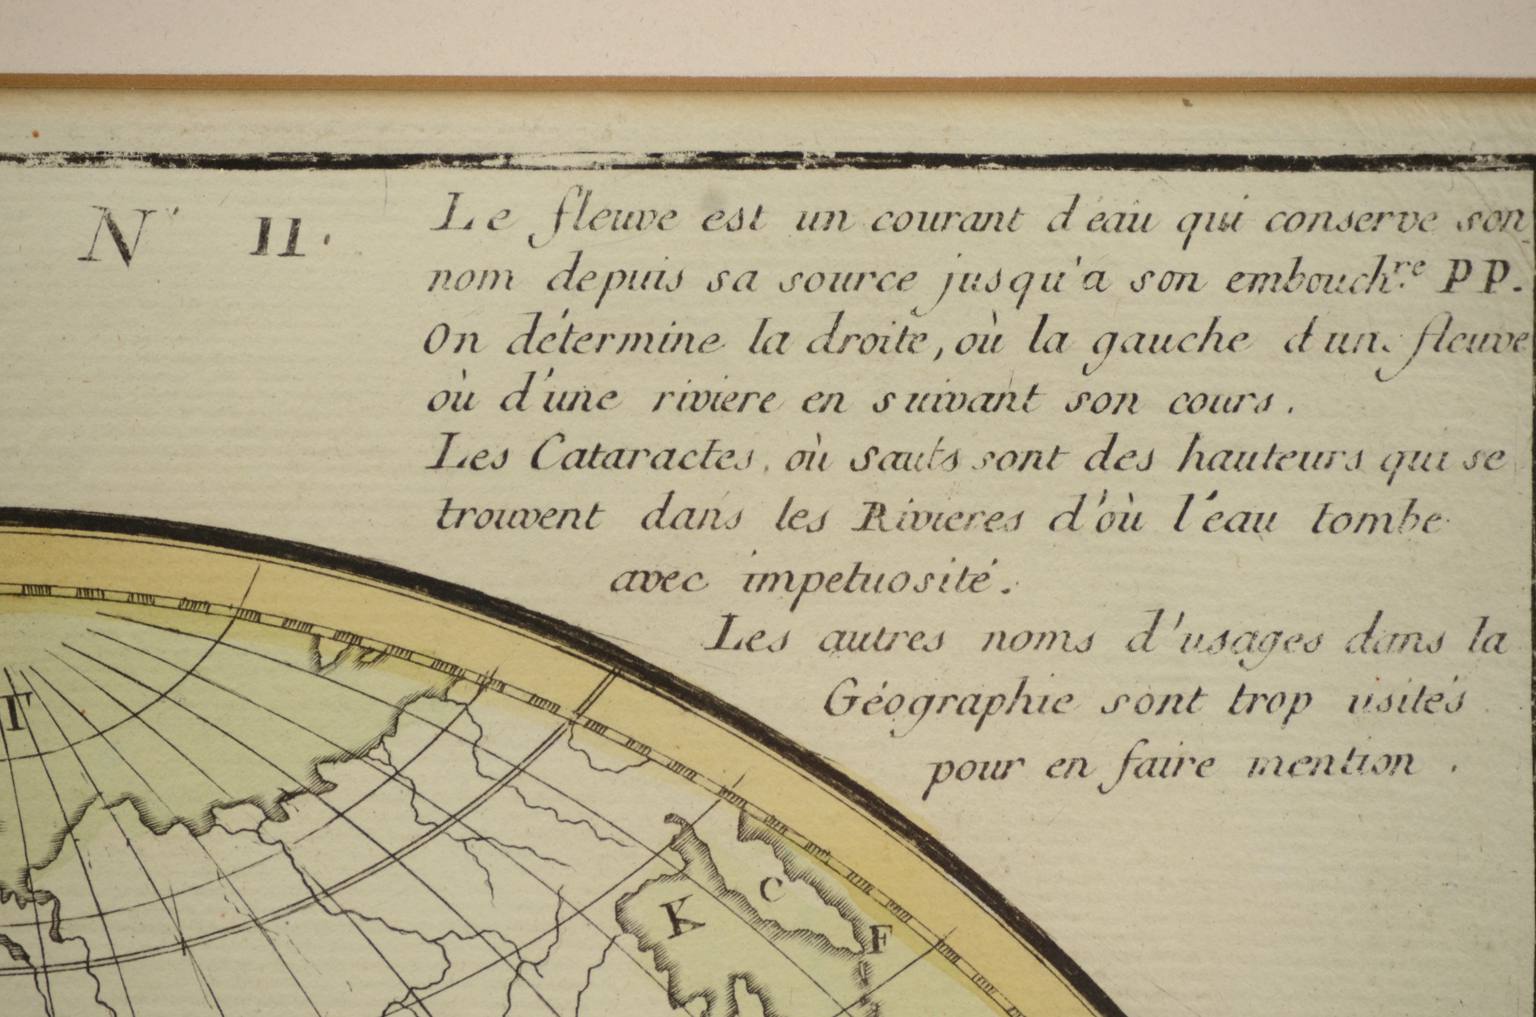 N° 11.
Le fleuve est un courant d'éau qui conserve son
nom depuis sa source jusqu'à son embouch.re PP.
On détermine la droite, où la gauche d'un fleuve
où d'une riviere en suivant son cours.
Les Cataractes, où sauts sont des hauteurs qui se
trouvent dans les Rivieres d'où l'éau tombe
avec impetuosité.
Les autres noms d'usages dans la
Géographie sont trop usités
pour en faire mention.
T
C
K
F